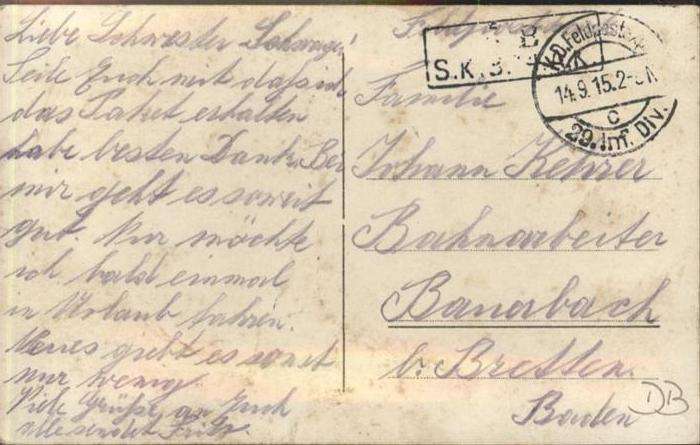 Liebe Schwester Schwager!
Teile Euch mit daß ich
das Paket erhalten
habe besten Dank. Bei
mir geht es soweit
gut. Nur möchte
ich bald einmal
in Urlaub fahren.
Neues giebt es sonst
nur wenig.
Viele Grüße an Euch
alle sendet Fritz.
S.K.B.
K.D. Feldpost
14.9.15.2-3N
c
29. Inf. Div.
Familie
Johann Kehrer
Bahnarbeiter
Bauerbach
b. Bretten.
Baden
DB